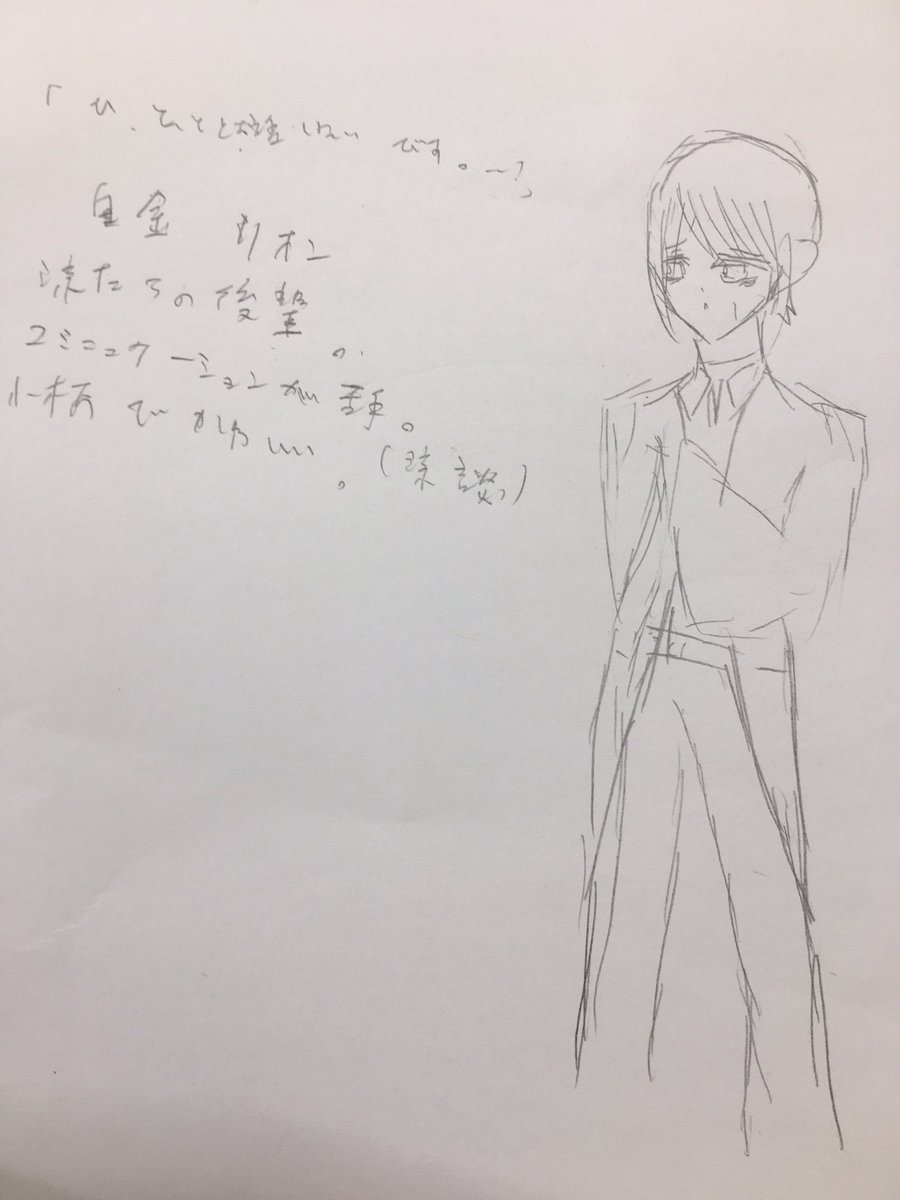 「ひ、ひとと話しないです。…」
白金 リオン
涼たちの後輩。
コミニュケーションが苦手。
小柄でかわいい。(涼談)